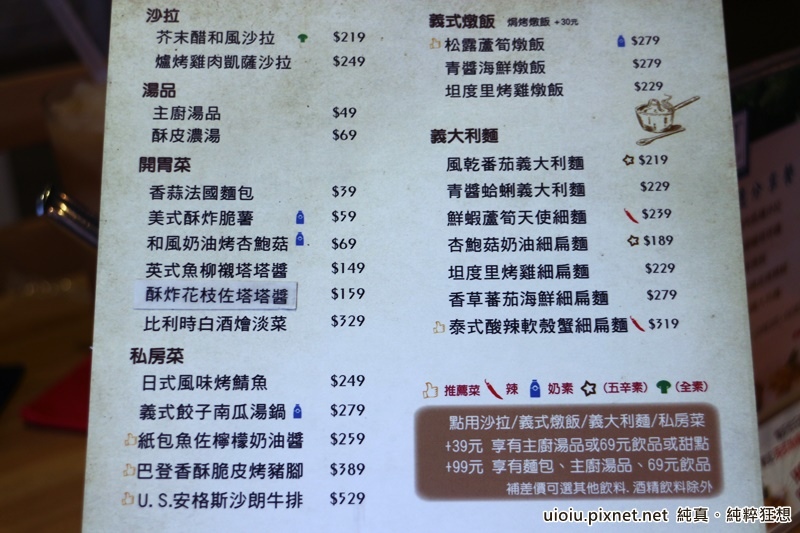 沙拉
芥末醋和風沙拉 $219
爐烤雞肉凱薩沙拉 $249
湯品
主廚湯品 $49
酥皮濃湯 $69
開胃菜
香蒜法國麵包 $39
美式酥炸脆薯 $59
和風奶油烤杏鮑菇 $69
英式魚柳襯塔塔醬 $149
酥炸花枝佐塔塔醬 $159
比利時白酒燴淡菜 $329
私房菜
日式風味烤鯖魚 $249
義式餃子南瓜湯鍋 $279
紙包魚佐檸檬奶油醬 $259
巴登香酥脆皮烤豬腳 $389
U.S.安格斯沙朗牛排 $529
義式燉飯 焗烤燉飯 +30元
松露蘆筍燉飯 $279
青醬海鮮燉飯 $279
坦度里烤雞燉飯 $229
義大利麵
風乾番茄義大利麵 $219
青醬蛤蜊義大利麵 $229
鮮蝦蘆筍天使細麵 $239
杏鮑菇奶油細扁麵 $189
坦度里烤雞細扁麵 $229
香草番茄海鮮細扁麵 $279
泰式酸辣軟殼蟹細扁麵 $319
推薦菜 辣 奶素 (五辛素) (全素)
點用沙拉/義式燉飯/義大利麵/私房菜
+39元 享有主廚湯品或69元飲品或甜點
+99元 享有麵包、主廚湯品、69元飲品
補差價可選其他飲料.酒精飲料除外
uioiu.pixnet.net 純真。純粹狂想